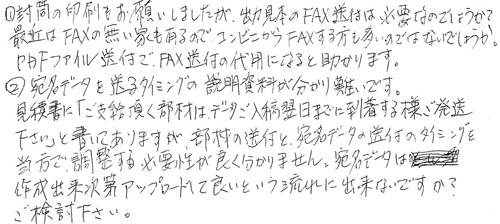 ①封筒の印刷をお願いしましたが、出力見本のFAX送付は必要なのでしょうか?
最近はFAXの無い家も有るのでコンビニからFAXする方も多いのではないでしょうか。
PDFファイル送付で、FAX送付の代用になると助かります。
②宛名データを送るタイミングの説明資料が分かり難いです。
見積書に「ご支給頂く部材は、データご入稿翌日までに到着する様ご発送
下さい」と書いてありますが、部材の送付と、宛名データの送付のタイミングを
当方で、調整する必要性が良く分かりません。宛名データは
作成出来次第アップロードして良いという流れに出来ないですか?
ご検討下さい。